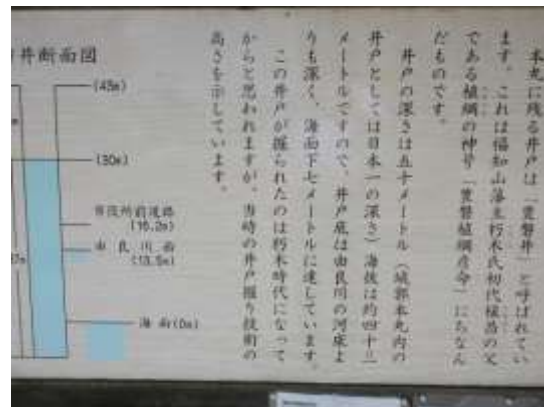 本丸に残る井戸は「豊磐井」と呼ばれてい
ます。これは福知山藩主朽木氏初代稙昌の父
である稙綱の神号「豊磐稙綱彦命」にちなん
だものです。
井戸の深さは五十メートル(城郭本丸内の
井戸としては日本一の深さ)海抜は約四十三
メートルですので、井戸底は由良川の河底よ
りも深く、海面下七メートルに達しています。
この井戸が掘られたのは朽木時代になって
からと思われますが、当時の井戸掘り技術の
高さを示しています。
井断面図
(43m)
(30m)
市役所前道路
(16.2m)
由良川面
(13.5m)
海面(0m)
7m